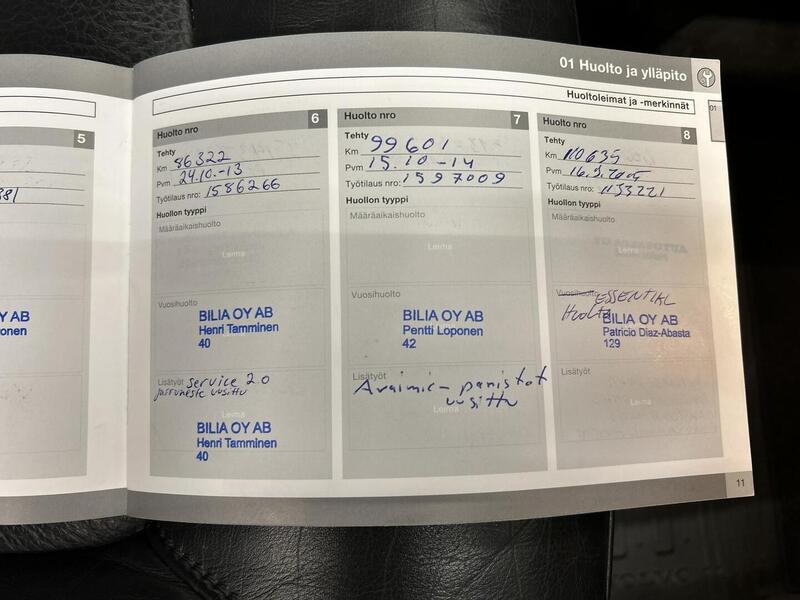 01 Huolto ja ylläpito
Huoltoleimat ja -merkinnät
01
5
381
Y AB
ronen
Huolto nro 6
Tehty
Km 86322
Pvm 24.10.-13
Työtilaus nro: 1586266
Huollon tyyppi
Määräaikaishuolto
Leima
Vuosihuolto
BILIA OY AB
Henri Tamminen
40
Lisätyöt service 2.0
jarruneste uusittu
Leima
BILIA OY AB
Henri Tamminen
40
Huolto nro 7
Tehty
Km 99601
Pvm 15.10-14
Työtilaus nro: 1597009
Huollon tyyppi
Määräaikaishuolto
Leima
Vuosihuolto
BILIA OY AB
Pentti Loponen
42
Lisätyöt
Avaimic- paristot
uusittu
Leima
Huolto nro 8
Tehty
Km 110635
Pvm
Työtilaus nro: 1133221
Huollon tyyppi
Määräaikaishuolto
Leima
Vuosihuolto ESSENTIAL
Huolto
BILIA OY AB
Patricio Diaz-Abasta
129
Lisätyöt
Leima
11